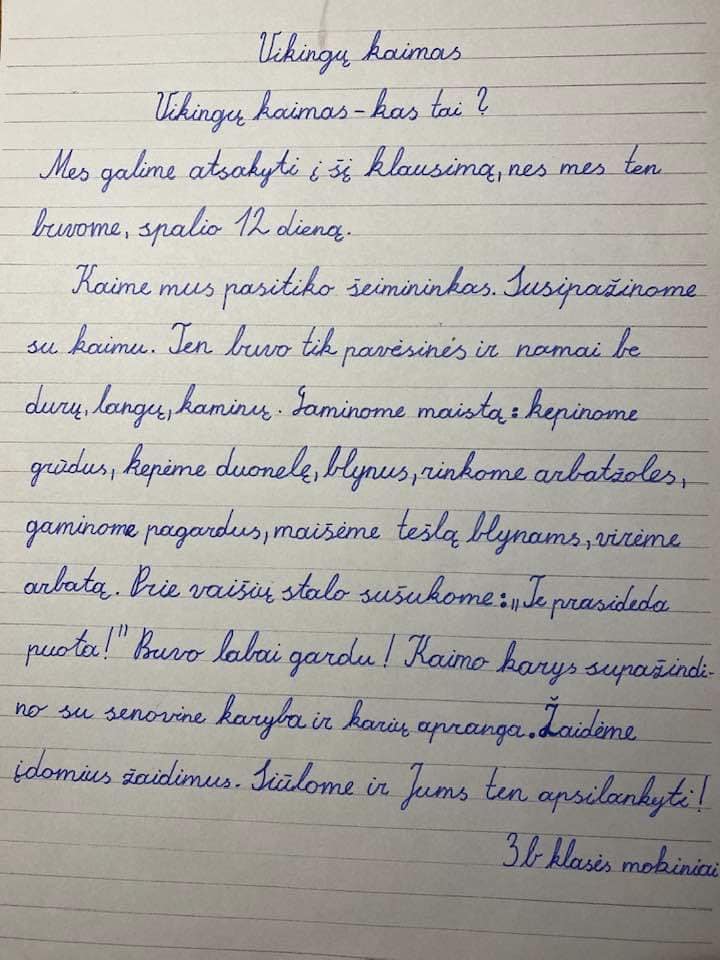 Vikingų kaimas
Vikingų kaimas - kas tai ?
Mes galime atsakyti į šį klausimą, nes mes ten
buvome, spalio 12 dieną.
Kaime mus pasitiko šeimininkas. Susipažinome
su kaimu. Ten buvo tik pavėsinės ir namai be
durų, langų, kaminų. Gaminome maistą: kepinome
grūdus, kepėme duonelę, blynus, rinkome arbatžoles,
gaminome pagardus, maišėme tešlą blynams, virėme
arbatą. Prie vaišių stalo sušukome: „Te prasideda
puota!" Buvo labai gardu! Kaimo karys supažindi-
no su senovine karyba ir karių apranga. Žaidėme
įdomius žaidimus. Siūlome ir Jums ten apsilankyti!
3b klasės mokiniai